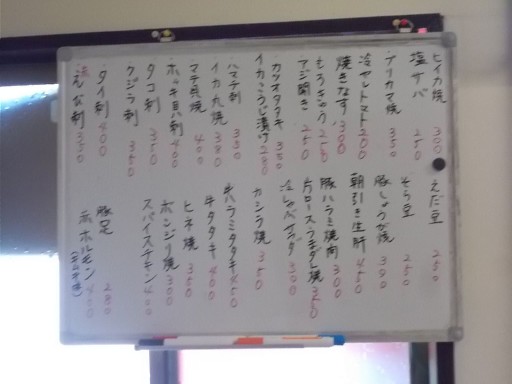 ヒイカ焼 300
塩サバ 250
ブリカマ焼 350
冷やしトマト 200
焼きなす 300
もろきゅう 250
アジ開き 250
カツオタタキ 380
イカこうじ漬け 280
ハマチ刺 350
イカ丸焼 380
マテ貝焼 400
ホッキ貝刺 400
タコ刺 350
クジラ刺 360
タイ刺 400
えび刺 350
えだ豆 250
そら豆 250
豚しょうが焼 380
朝引き生肝 450
豚ハラミ焼肉 300
肩ロース・ネギダレ焼 350
冷しゃべサラダ 300
カシラ焼 350
牛ハラミタタキ 450
牛タタキ 400
ヒネ焼 350
ボンジリ焼 300
スパイスチキン 400
豚足 280
ホルモン 400